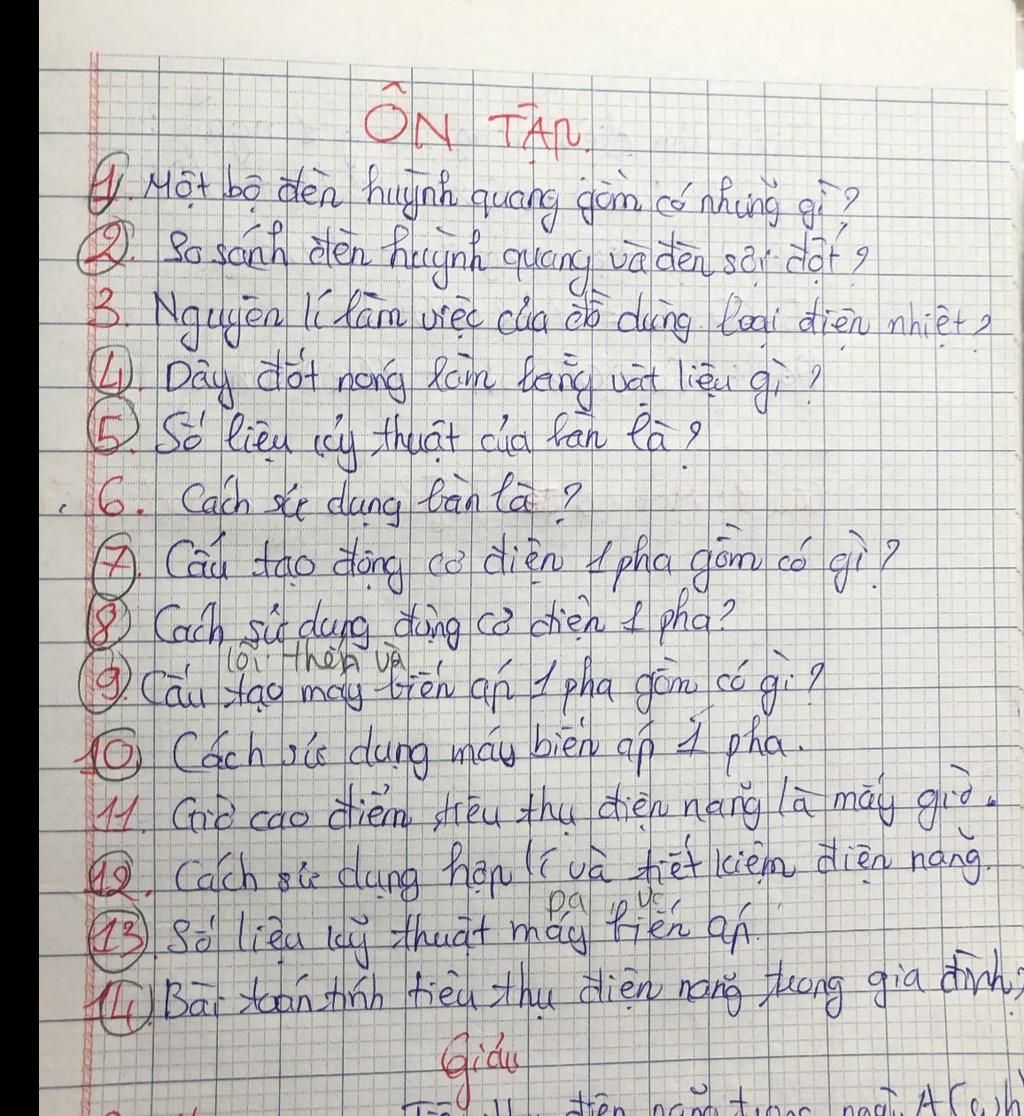 ÔN TẬP.
1. Một bộ đèn huỳnh quang gồm có những gì?
2. So sánh đèn huỳnh quang và đèn sợi đốt?
3. Nguyên lí làm việc của đồ dùng loại điện nhiệt?
4. Dây đốt nóng làm bằng vật liệu gì?
5. Số liệu kỹ thuật của bàn là?
6. Cách sử dụng bàn là?
7. Cấu tạo động cơ điện 1 pha gồm có gì?
8. Cách sử dụng động cơ điện 1 pha?
lõi thép và
9. Cấu tạo máy biến áp 1 pha gồm có gì?
10. Cách sử dụng máy biến áp 1 pha.
11. Giờ cao điểm tiêu thụ điện năng là mấy giờ.
12. Cách sử dụng hợp lí và tiết kiệm điện năng.
13. Số liệu kỹ thuật máy biến áp.
14. Bài toán tính tiêu thụ điện năng trong gia đình?
Giải
điện năng trong ngày A